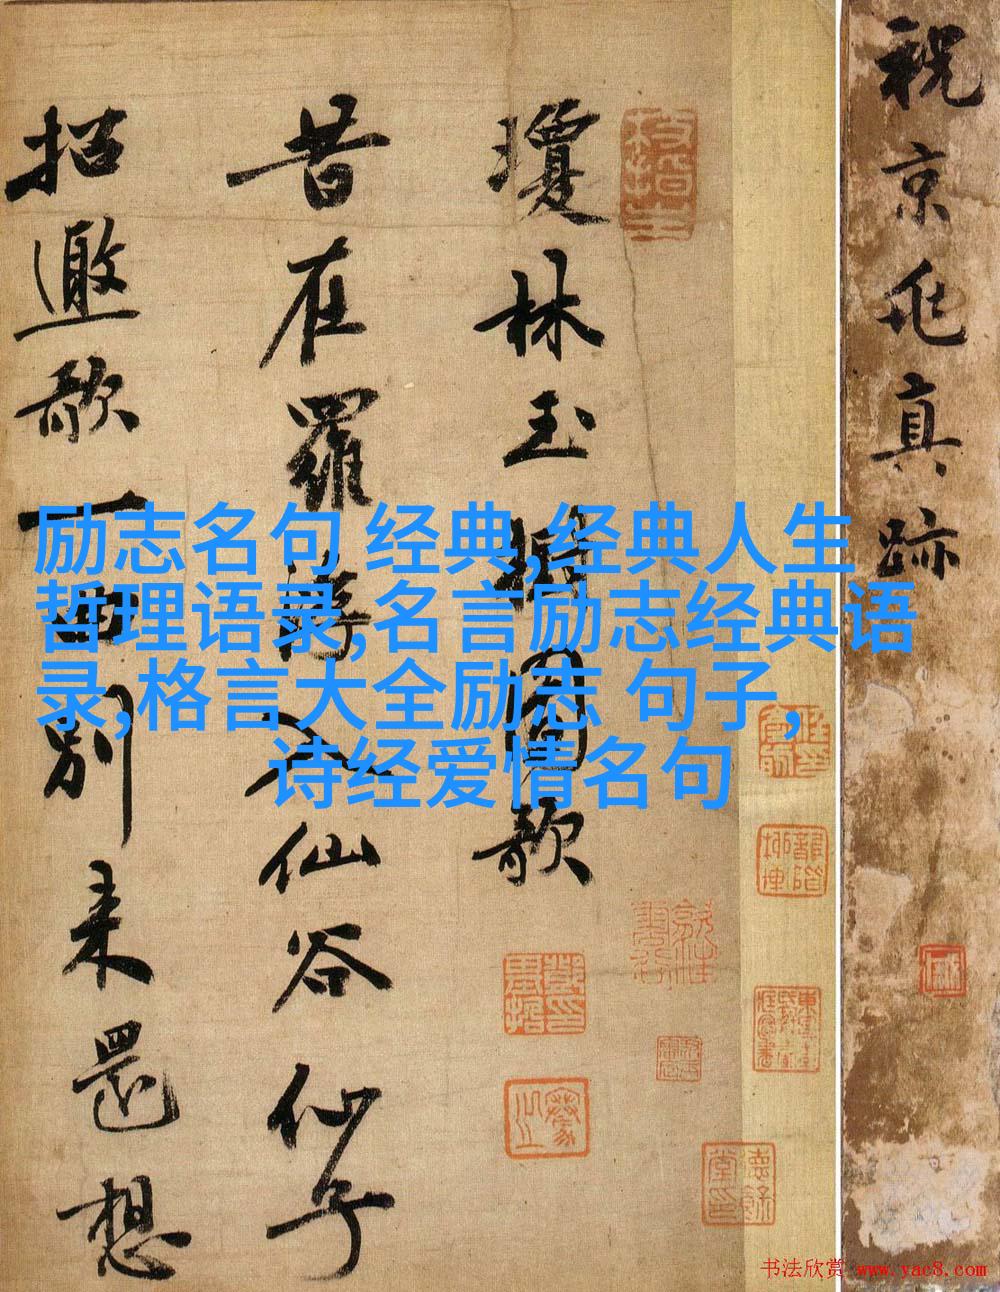 祝京兆真跡
瓊林玉圖歌
昔在羅浮入仙谷仙子
招邀歌一曲別来還想
励志名句 经典,经典人生
哲理语录,名言励志经典语
录,格言大全励志 句子,
诗经爱情名句
书法欣赏 www.yac8.com